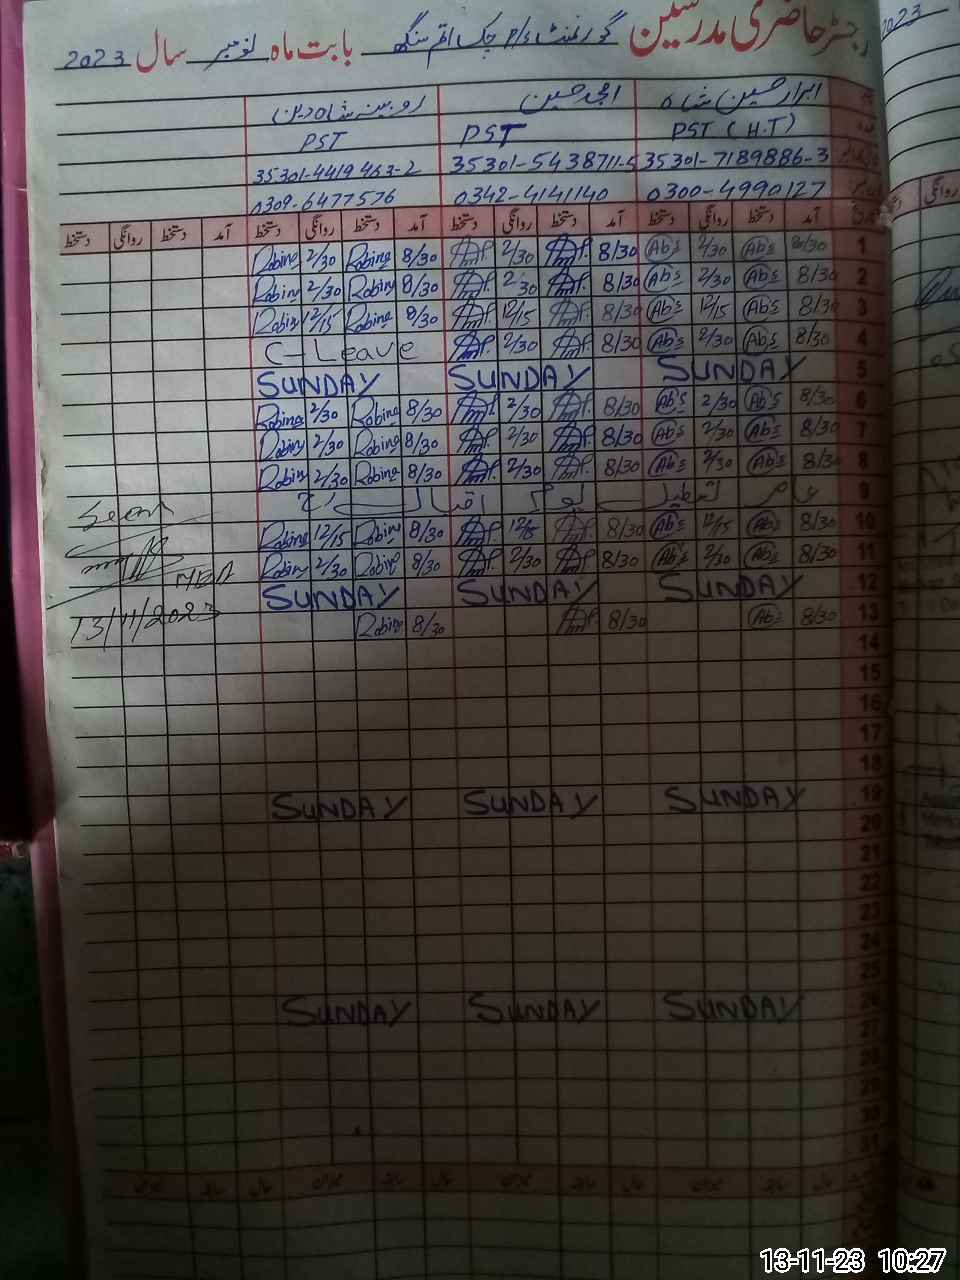 رجسٹر حاضری مدرسین گورنمنٹ p/s چک اتم سنگھ بابت ماہ نومبر سال 2023
2023
ابرار حسین شاہ امجد حسین روبینہ شاہ دین
PST (H.T) PST PST
35301-7189886-3 35301-5438711-5 35301-4419463-2
0300-4990127 0342-4141140 0309-6477576
آمد دستخط روانگی دستخط آمد دستخط روانگی دستخط آمد دستخط روانگی دستخط آمد دستخط روانگی دستخط
1 8/30 Abs 2/30 Abs 8/30 2/30 8/30 Robina 2/30 Robina
2 8/30 Abs 2/30 Abs 8/30 2/30 8/30 Robina 2/30 Robina
3 8/30 Abs 12/15 Abs 8/30 12/15 8/30 Robina 12/15 Robina
4 8/30 Abs 2/30 Abs 8/30 2/30 C-Leave
5 SUNDAY SUNDAY SUNDAY
6 8/30 Abs 2/30 Abs 8/30 2/30 8/30 Robina 2/30 Robina
7 8/30 Abs 2/30 Abs 8/30 2/30 8/30 Robina 2/30 Robina
8 8/30 Abs 2/30 Abs 8/30 2/30 8/30 Robina 2/30 Robina
9 عام تعطیل یوم اقبال
10 8/30 Abs 12/15 Abs 8/30 12/15 8/30 Robina 12/15 Robina Seen
11 8/30 Abs 2/30 Abs 8/30 2/30 8/30 Robina 2/30 Robina
12 SUNDAY SUNDAY SUNDAY MEA
13 8/30 Abs 8/30 8/30 Robina 13/11/2023
14
15
16
17
18
19 SUNDAY SUNDAY SUNDAY
20
21
22
23
24
25
26 SUNDAY SUNDAY SUNDAY
27
28
29
30
31
13-11-23 10:27